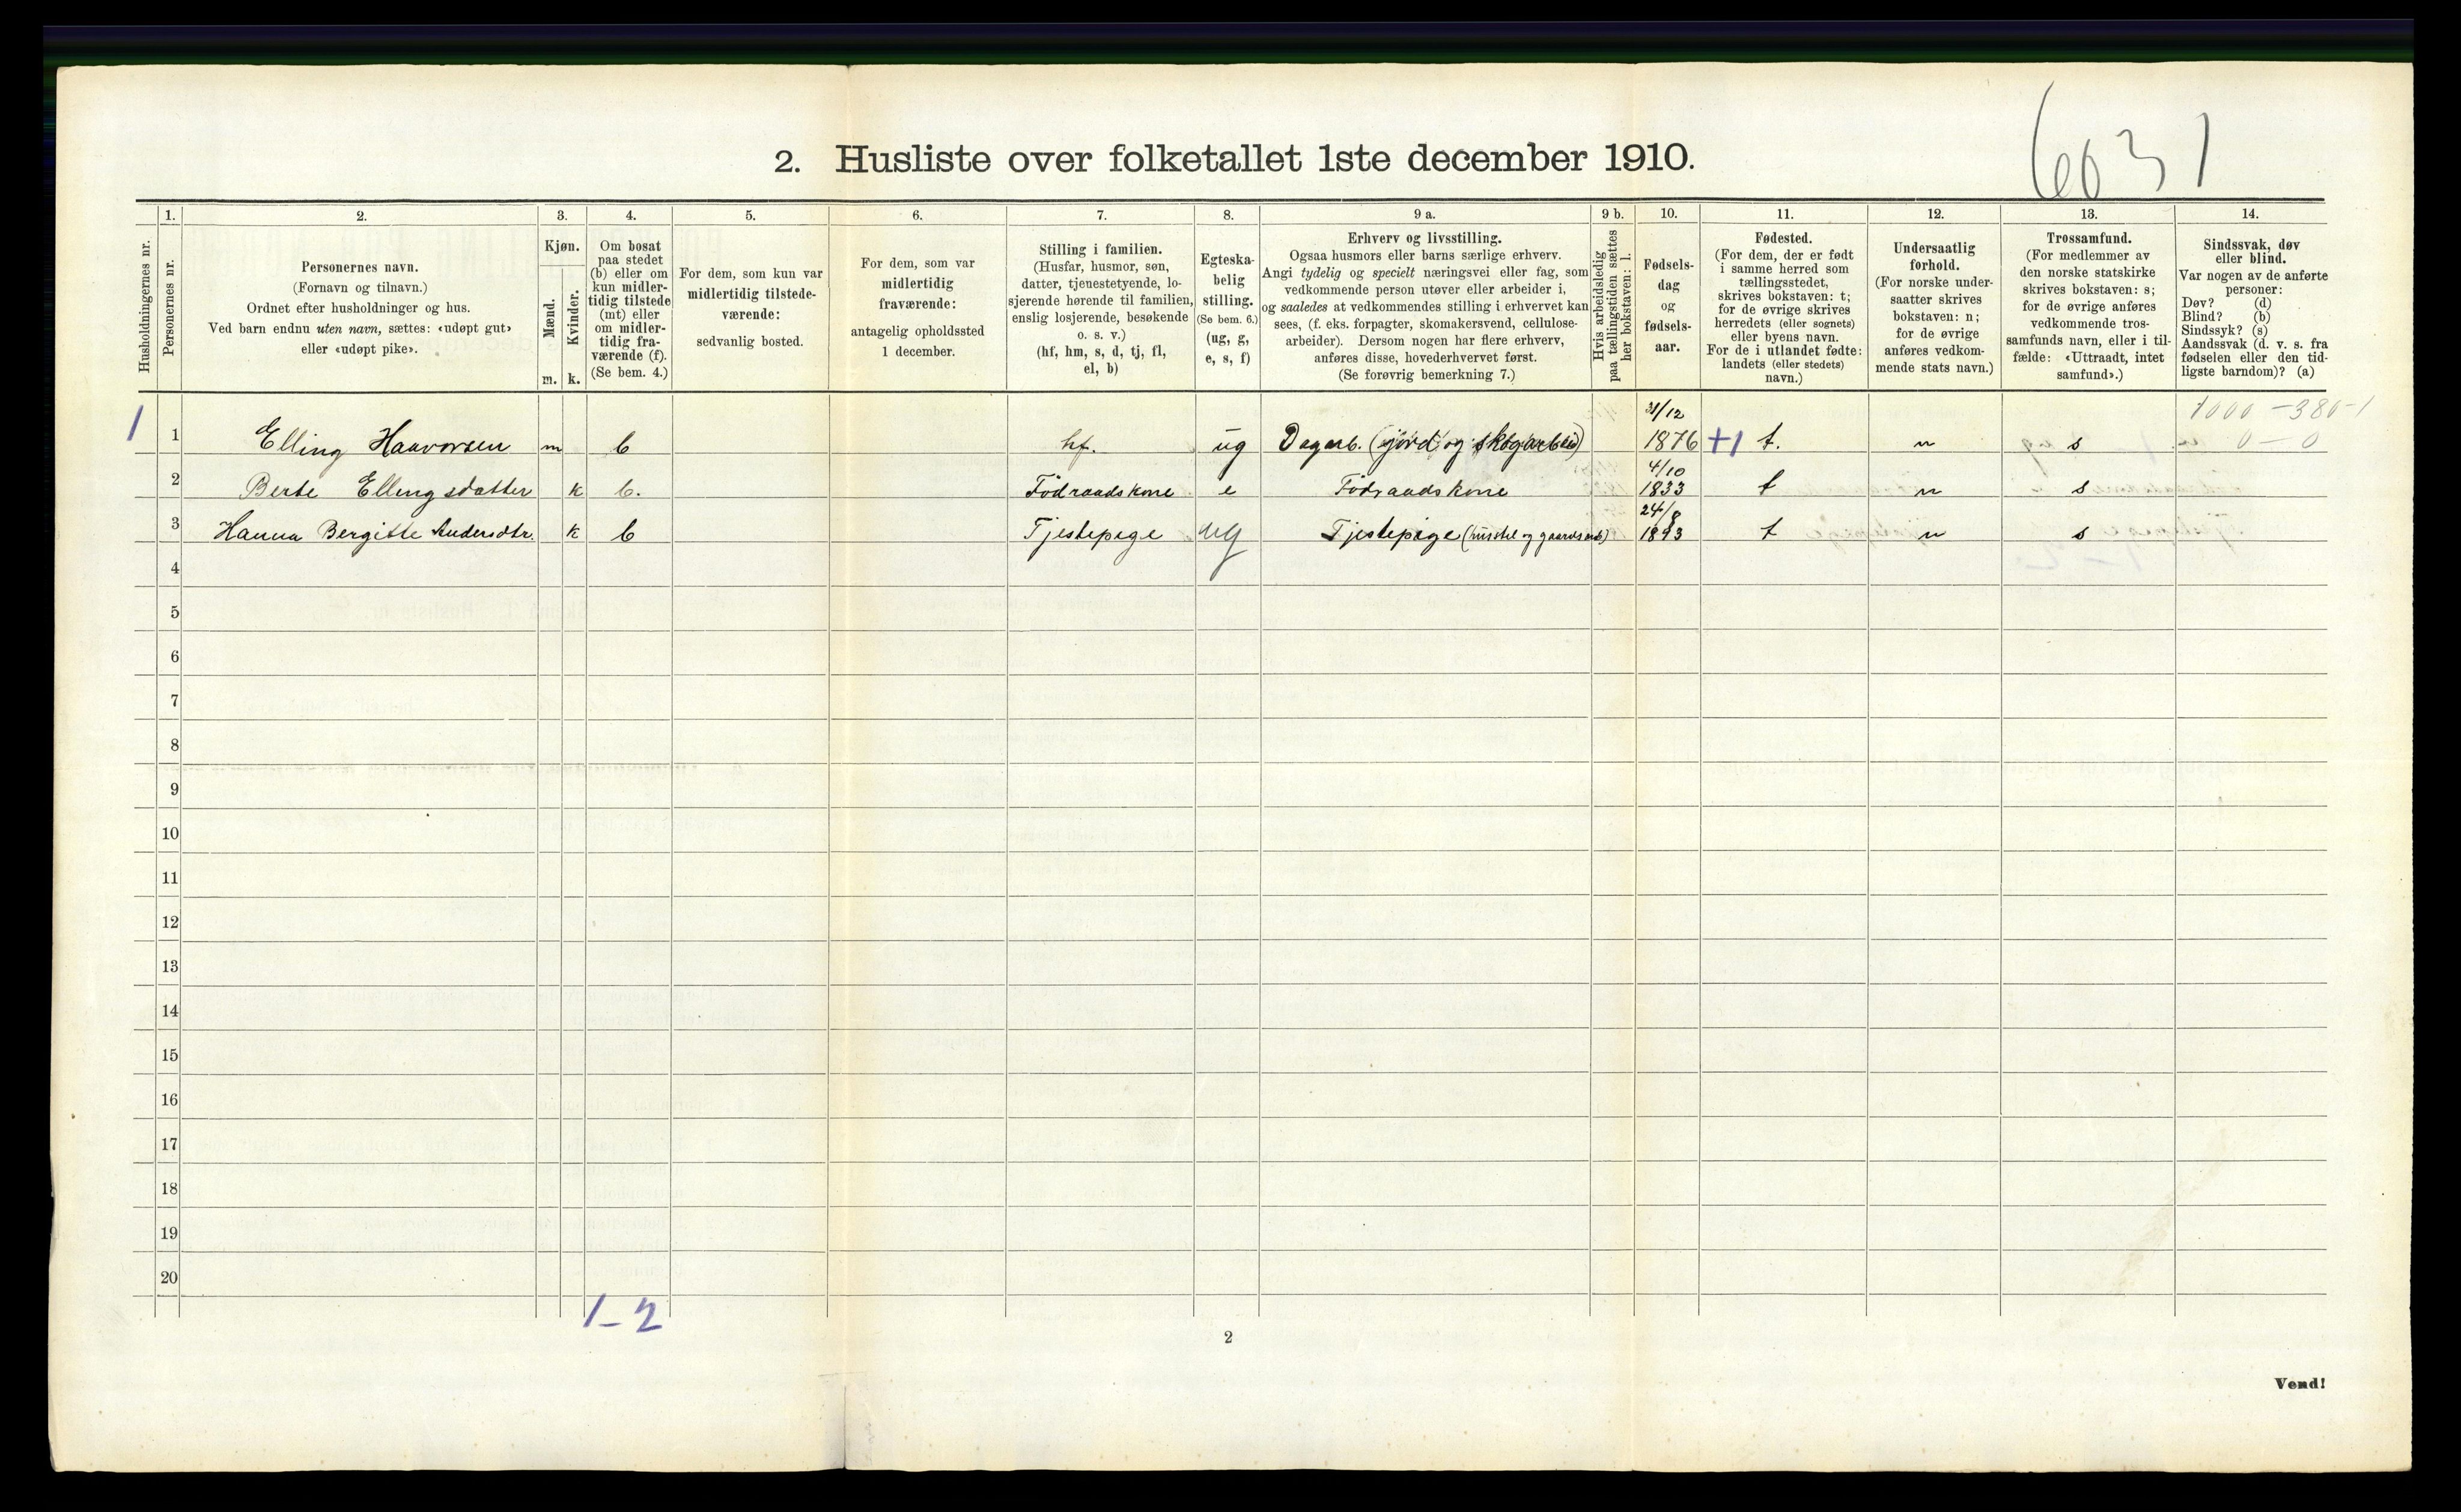 6031
2. Husliste over folketallet 1ste december 1910.
1. 2. 3. 4. 5. 6. 7. 8. 9 a. 9 b. 10. 11. 12. 13. 14.
Husholdningernes nr.
Personernes nr.
Personernes navn.
(Fornavn og tilnavn.)
Ordnet efter husholdninger og hus.
Ved barn endnu uten navn, sættes: «udøpt gut»
eller «udøpt pike».
Kjøn.
Mænd.
Kvinder.
m. k.
Om bosat
paa stedet
(b) eller om
kun midler-
tidig tilstede
(mt) eller
om midler-
tidig fra-
værende (f).
(Se bem. 4.)
For dem, som kun var
midlertidig tilstede-
værende:
sedvanlig bosted.
For dem, som var
midlertidig
fraværende:
antagelig opholdssted
1 december.
Stilling i familien.
(Husfar, husmor, søn,
datter, tjenestetyende, lo-
sjerende hørende til familien,
enslig losjerende, besøkende
o. s. v.)
(hf, hm, s, d, tj, fl,
el, b)
Egteska-
belig
stilling.
(Se bem. 6.)
(ug, g,
e, s, f)
Erhverv og livsstilling.
Ogsaa husmors eller barns særlige erhverv.
Angi tydelig og specielt næringsvei eller fag, som
vedkommende person utøver eller arbeider i,
og saaledes at vedkommendes stilling i erhvervet kan
sees, (f. eks. forpagter, skomakersvend, cellulose-
arbeider). Dersom nogen har flere erhverv,
anføres disse, hovederhvervet først.
(Se forøvrig bemerkning 7.)
Hvis arbeidsledig
paa tællingstiden sættes
her bokstaven: l.
Fødsels-
dag
og
fødsels-
aar.
Fødested.
(For dem, der er født
i samme herred som
tællingsstedet,
skrives bokstaven: t;
for de øvrige skrives
herredets (eller sognets)
eller byens navn.
For de i utlandet fødte:
landets (eller stedets)
navn.)
Undersaatlig
forhold.
(For norske under-
saatter skrives
bokstaven: n;
for de øvrige
anføres vedkom-
mende stats navn.)
Trossamfund.
(For medlemmer av
den norske statskirke
skrives bokstaven: s;
for de øvrige anføres
vedkommende tros-
samfunds navn, eller i til-
fælde: «Uttraadt, intet
samfund».)
Sindssvak, døv
eller blind.
Var nogen av de anførte
personer:
Døv? (d)
Blind? (b)
Sindssyk? (s)
Aandssvak (d. v. s. fra
fødselen eller den tid-
ligste barndom)? (a)
1000 - 380-1
0 - 0
1 1 Elling Haavorsen m b hf. ug Dagarb. (jord og skogarbeid) 31/12 1876 +1 t. n s
2 Berte Ellingsdatter k b. Födraadskone e Födraadskone 4/10 1833 t n s
3 Hanna Bergitte Andersdtr. k b Tjestepige ug Tjestepige (husstel og gaardsarb) 24/8 1893 t n s
4
5
6
7
8
9
10
11
12
13
14
15
16
17
18
19
20
1-2
2
Vend!